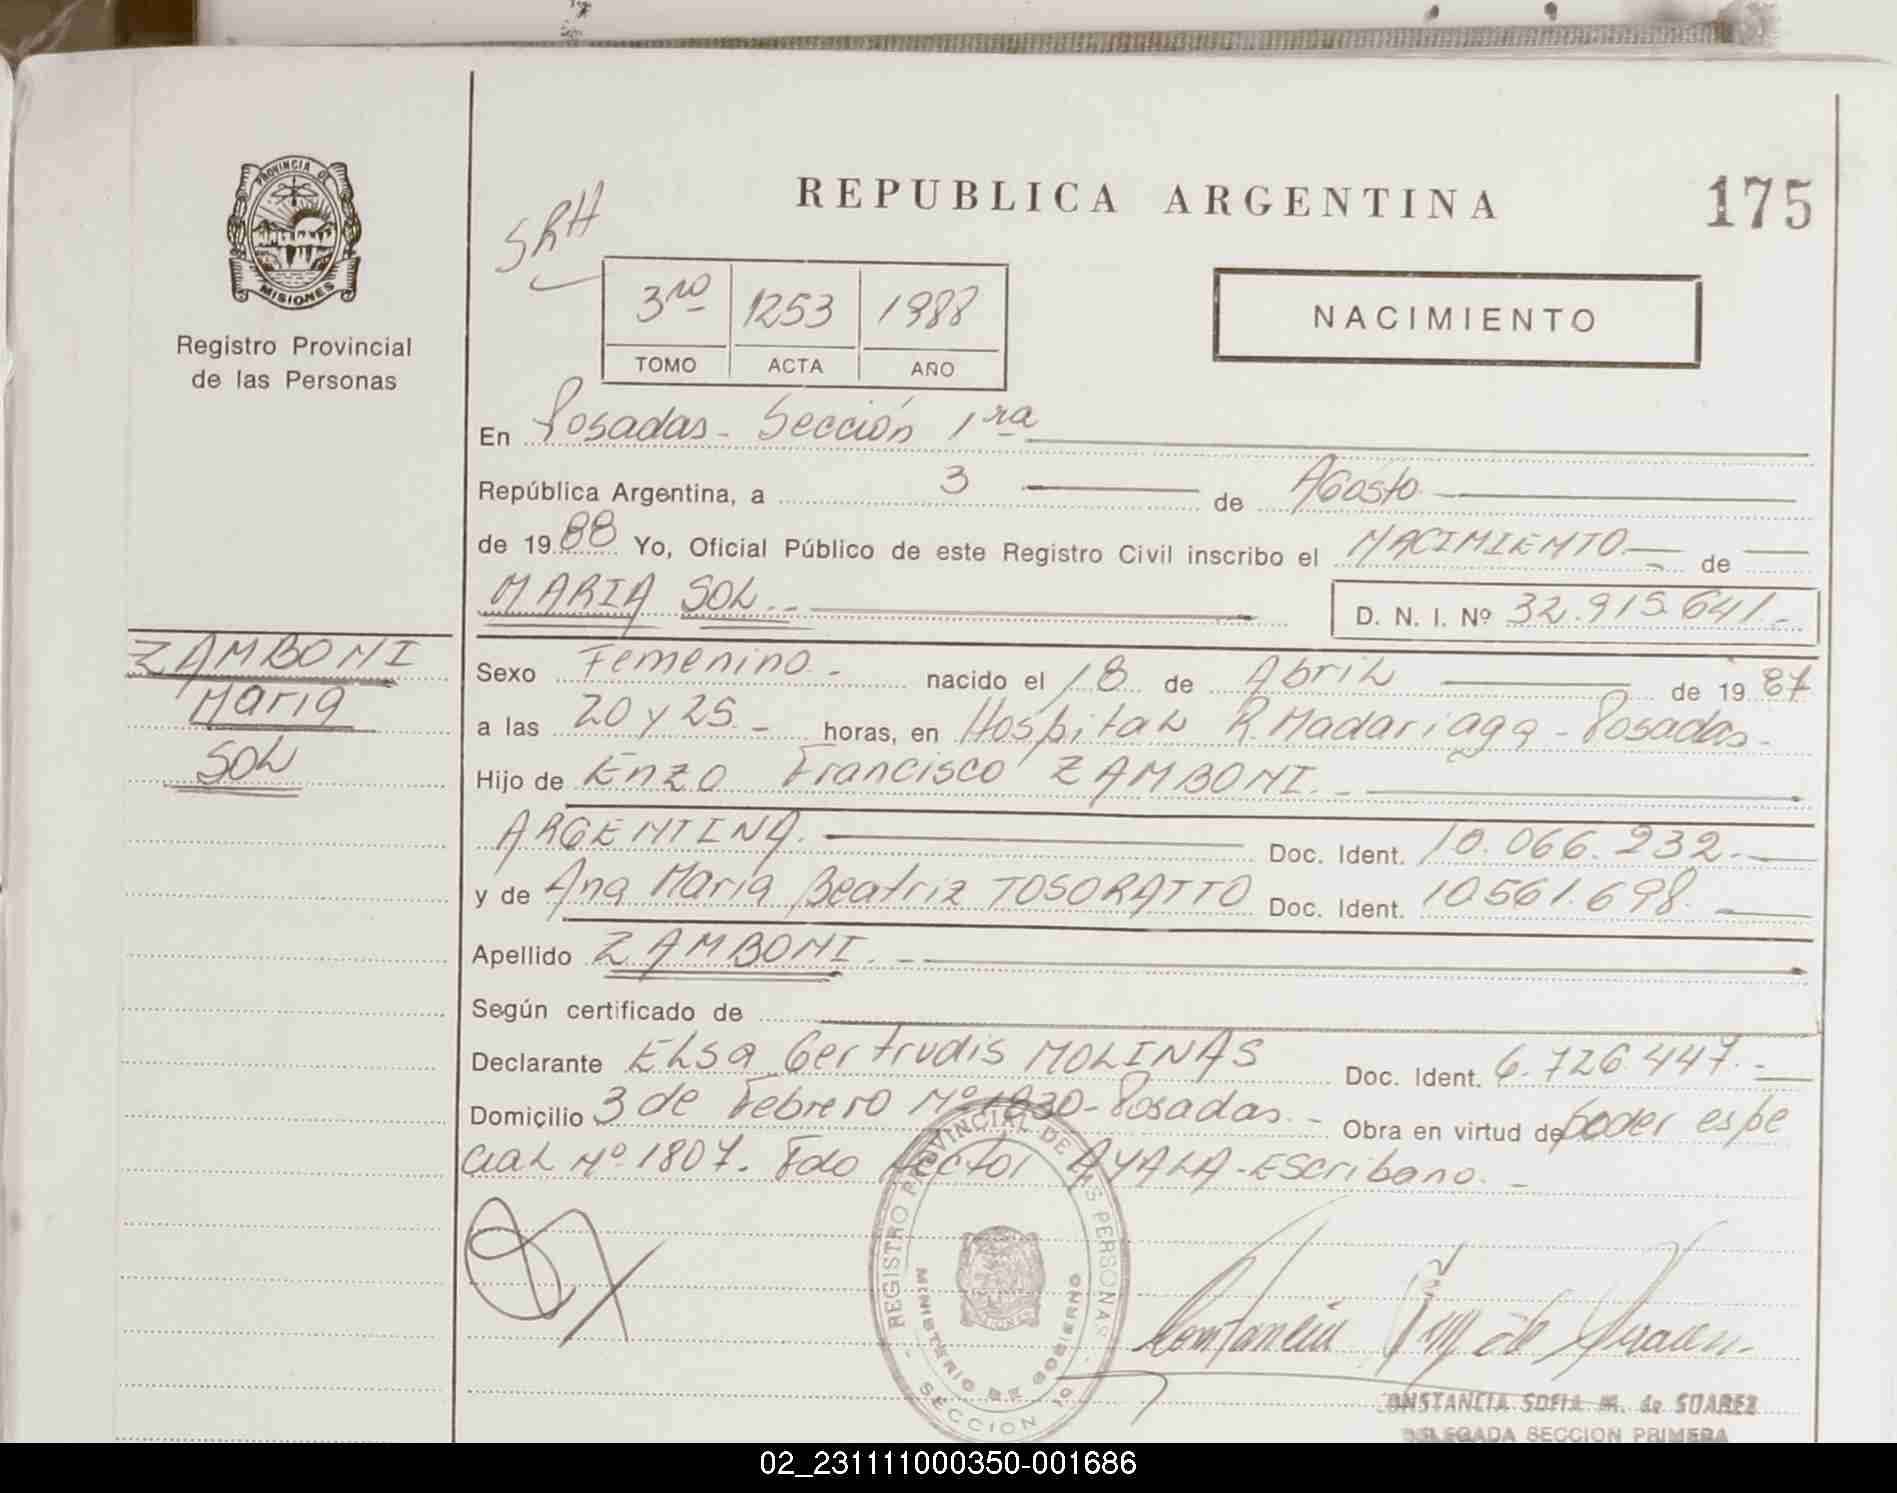 175
REPUBLICA ARGENTINA
PROVINCIA DE
MISIONES
Registro Provincial
de las Personas
SRH
3ro 1253 1988
TOMO ACTA AÑO
NACIMIENTO
En Posadas - Sección 1ra
República Argentina, a 3 de Agosto
de 1988 Yo, Oficial Público de este Registro Civil inscribo el NACIMIENTO de
MARIA SOL.- D. N. I. Nº 32.915.641.-
ZAMBONI
Maria
SOL
Sexo Femenino - nacido el 18 de Abril de 1987
a las 20 y 25 - horas, en Hospital R. Madariaga - Posadas -
Hijo de Enzo Francisco ZAMBONI.-
ARGENTINA. Doc. Ident. 10.066.232.-
y de Ana Maria Beatriz TOSORATTO Doc. Ident. 10.561.698.
Apellido ZAMBONI.-
Según certificado de
Declarante Elsa Gertrudis MOLINAS Doc. Ident. 6.726.447.-
Domicilio 3 de Febrero Nº 1830 - Posadas.- Obra en virtud de poder espe
cial Nº 1807. Fdo Hector AYALA - Escribano.-
REGISTRO PROVINCIAL DE LAS PERSONAS
MINISTERIO DE GOBIERNO
SECCION 1º
CONSTANCIA SOFIA M. de SUAREZ
DELEGADA SECCION PRIMERA
02_231111000350-001686